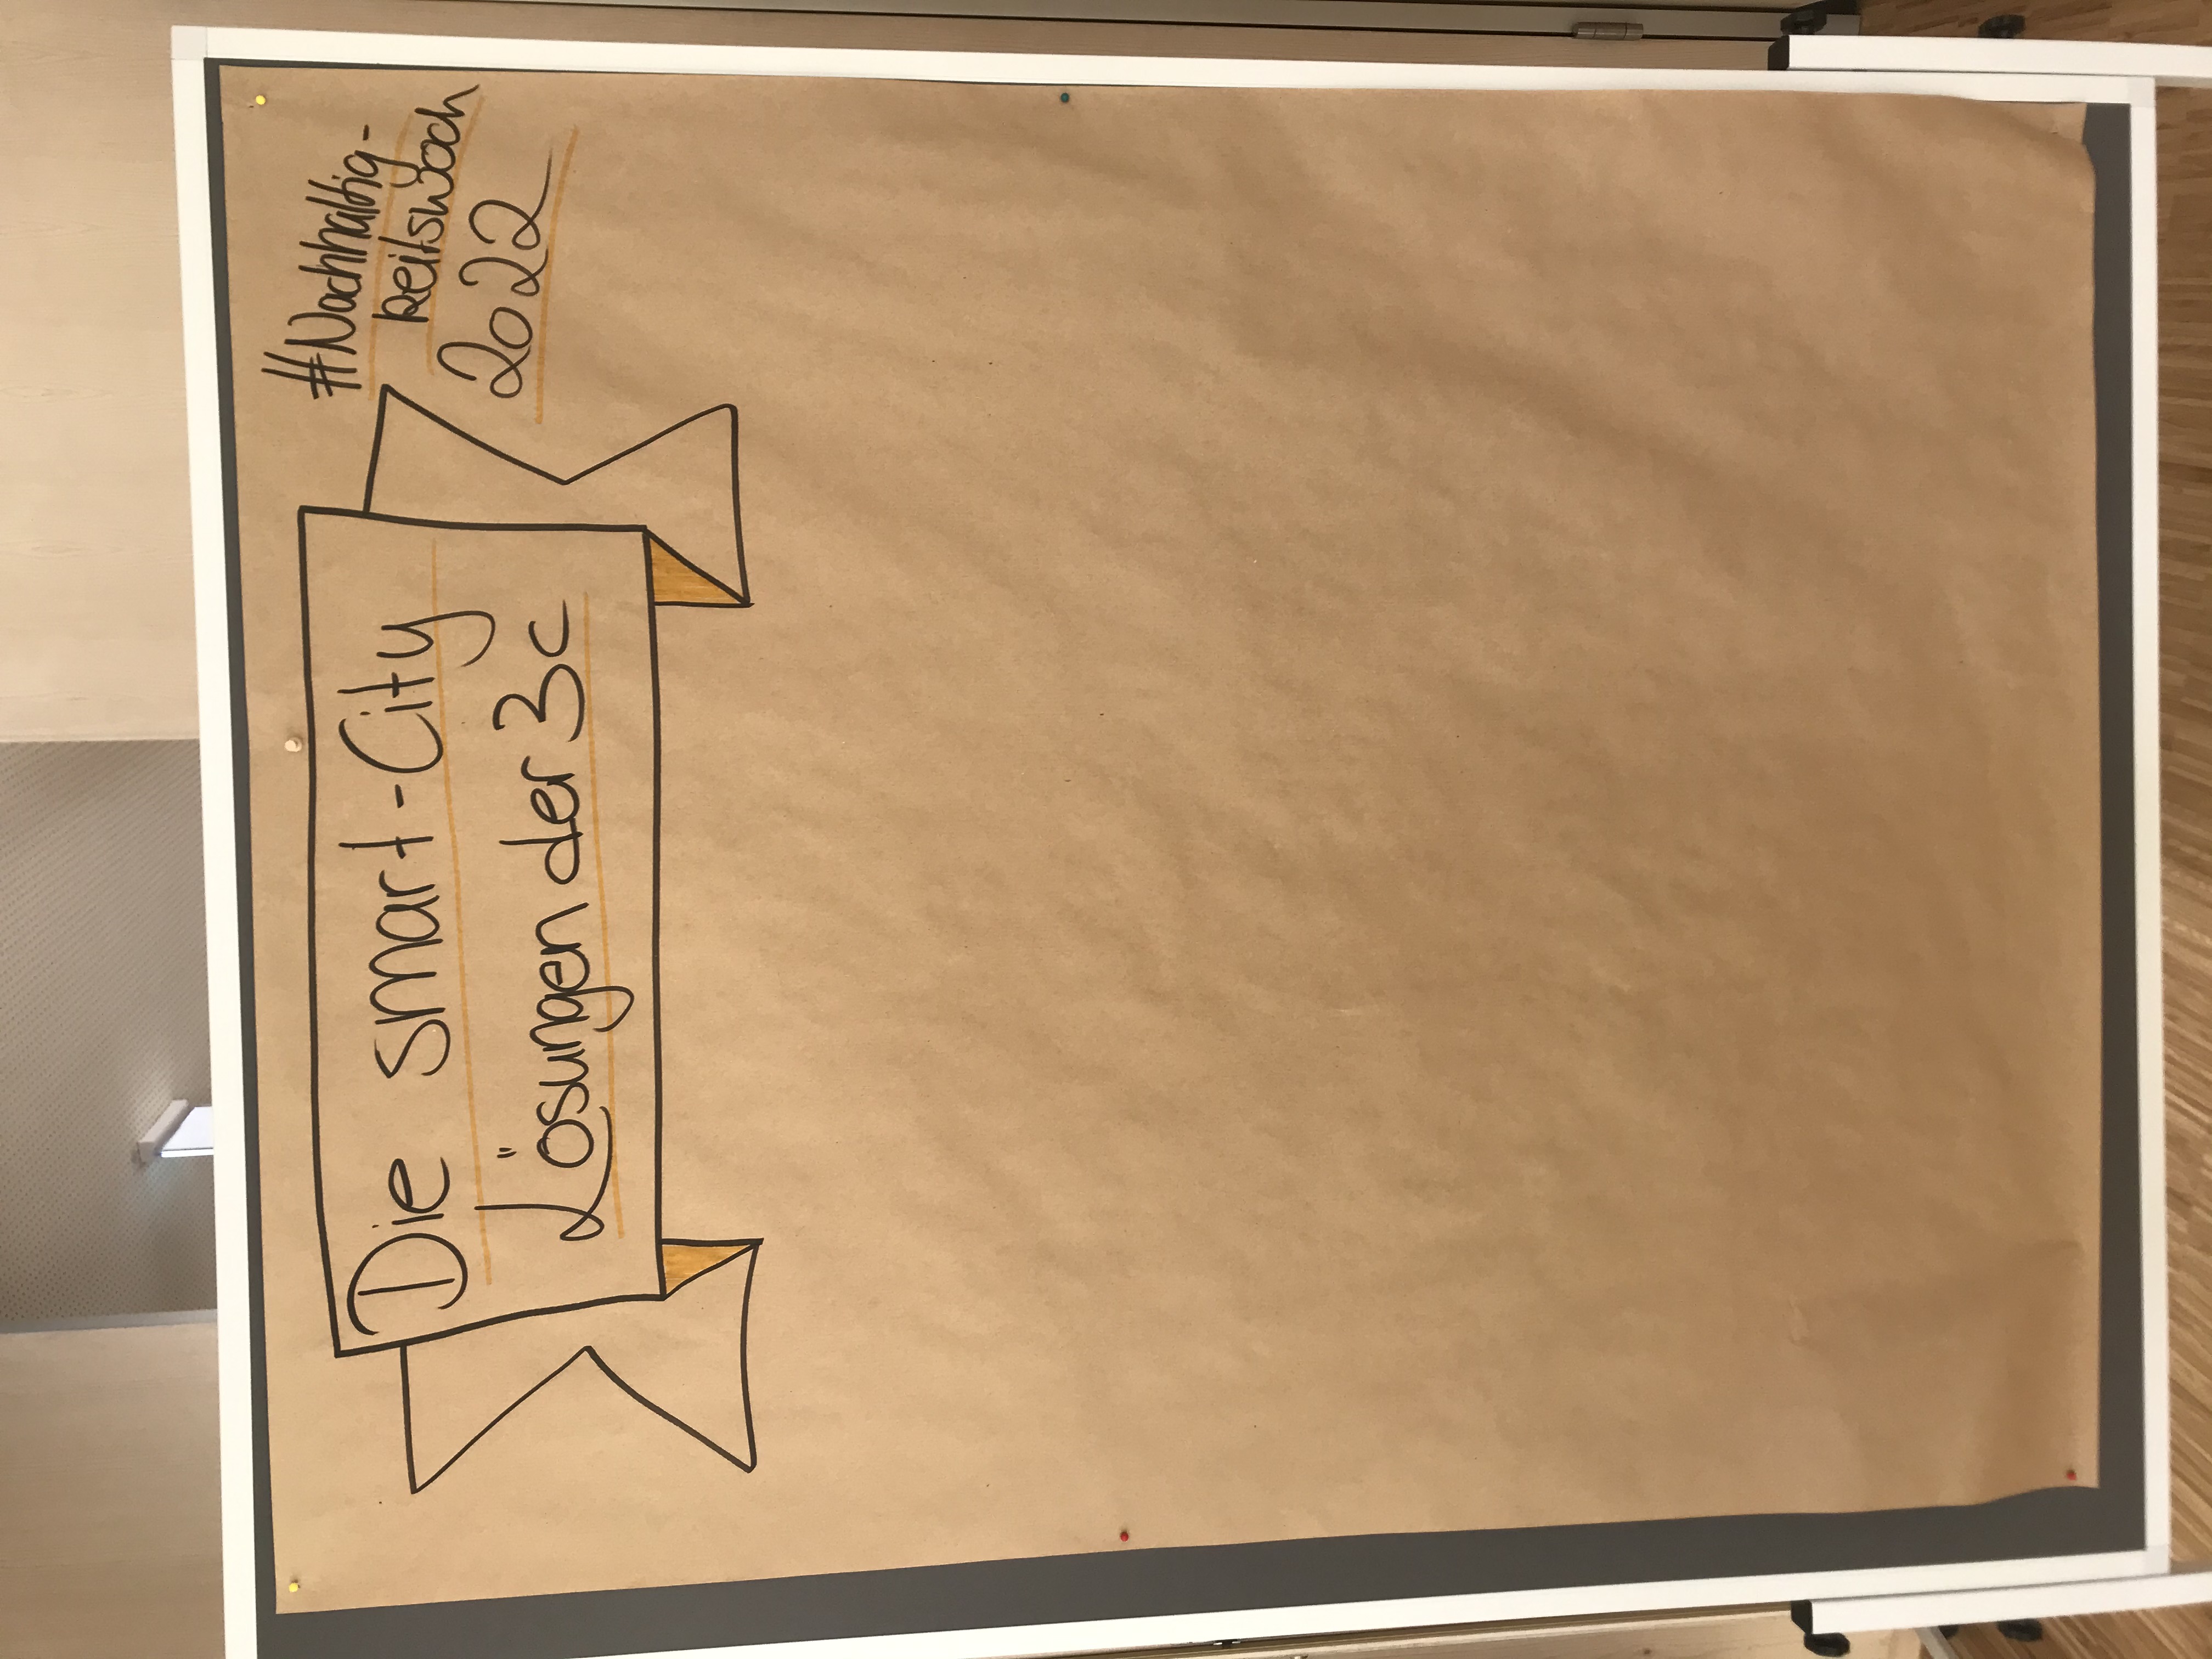 Die smart-City
Lösungen der 3c
#Nachhaltig-
keitswoch
2022